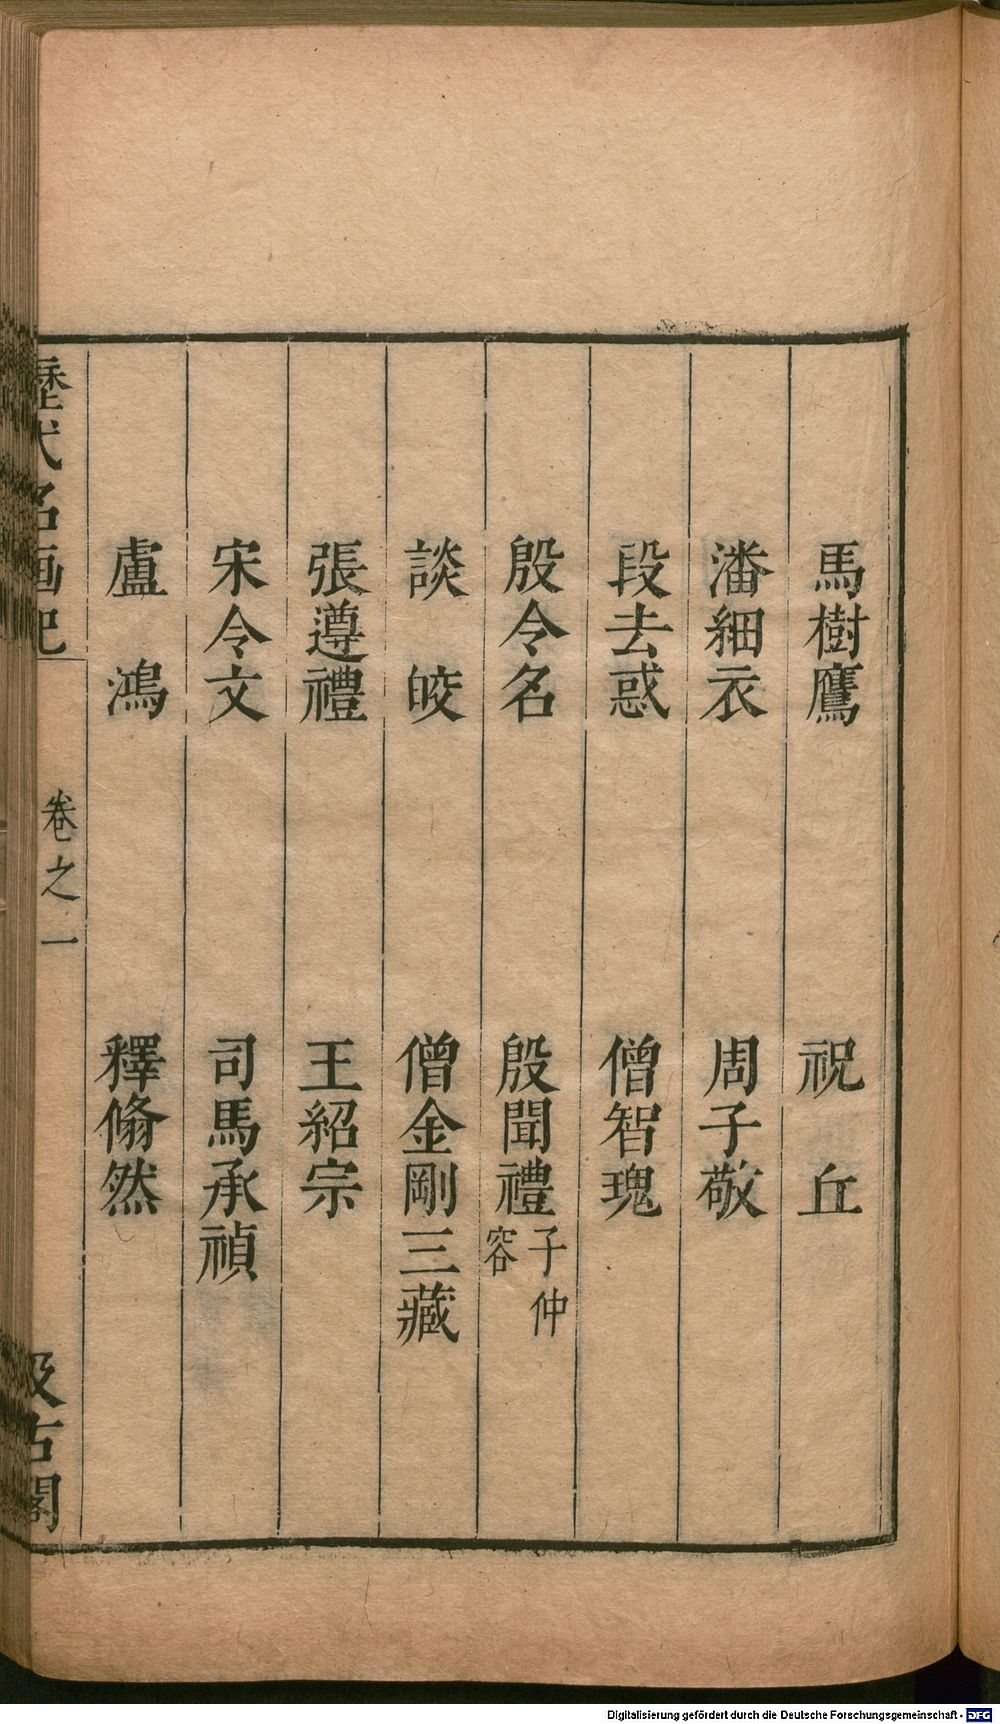 馬樹鷹 祝丘
潘細衣 周子敬
段去惑 僧智瑰
殷令名 殷聞禮 子仲容
談皎 僧金剛三藏
張遵禮 王紹宗
宋令文 司馬承禎
盧鴻 釋翛然
歷代名画记 卷之一 汲古閣
Digitalisierung gefördert durch die Deutsche Forschungsgemeinschaft - DFG